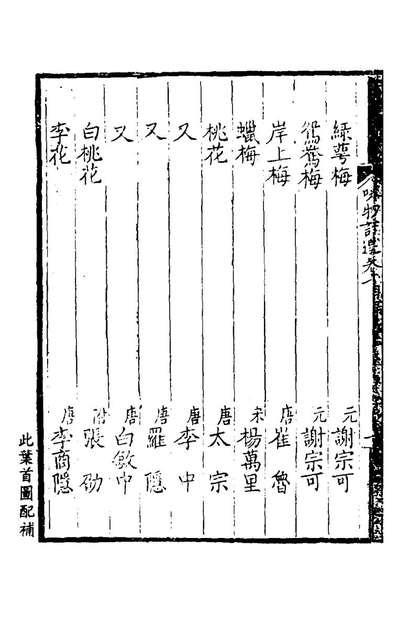 詠物詩選卷一
綠萼梅 元 謝宗可
鴛鴦梅 元 謝宗可
岸上梅 唐 崔魯
蠟梅 宋 楊萬里
桃花 唐 太宗
又 唐 李中
又 唐 羅隱
又 唐 白敏中
白桃花 張劭
李花 唐 李商隱
此葉首圖配補